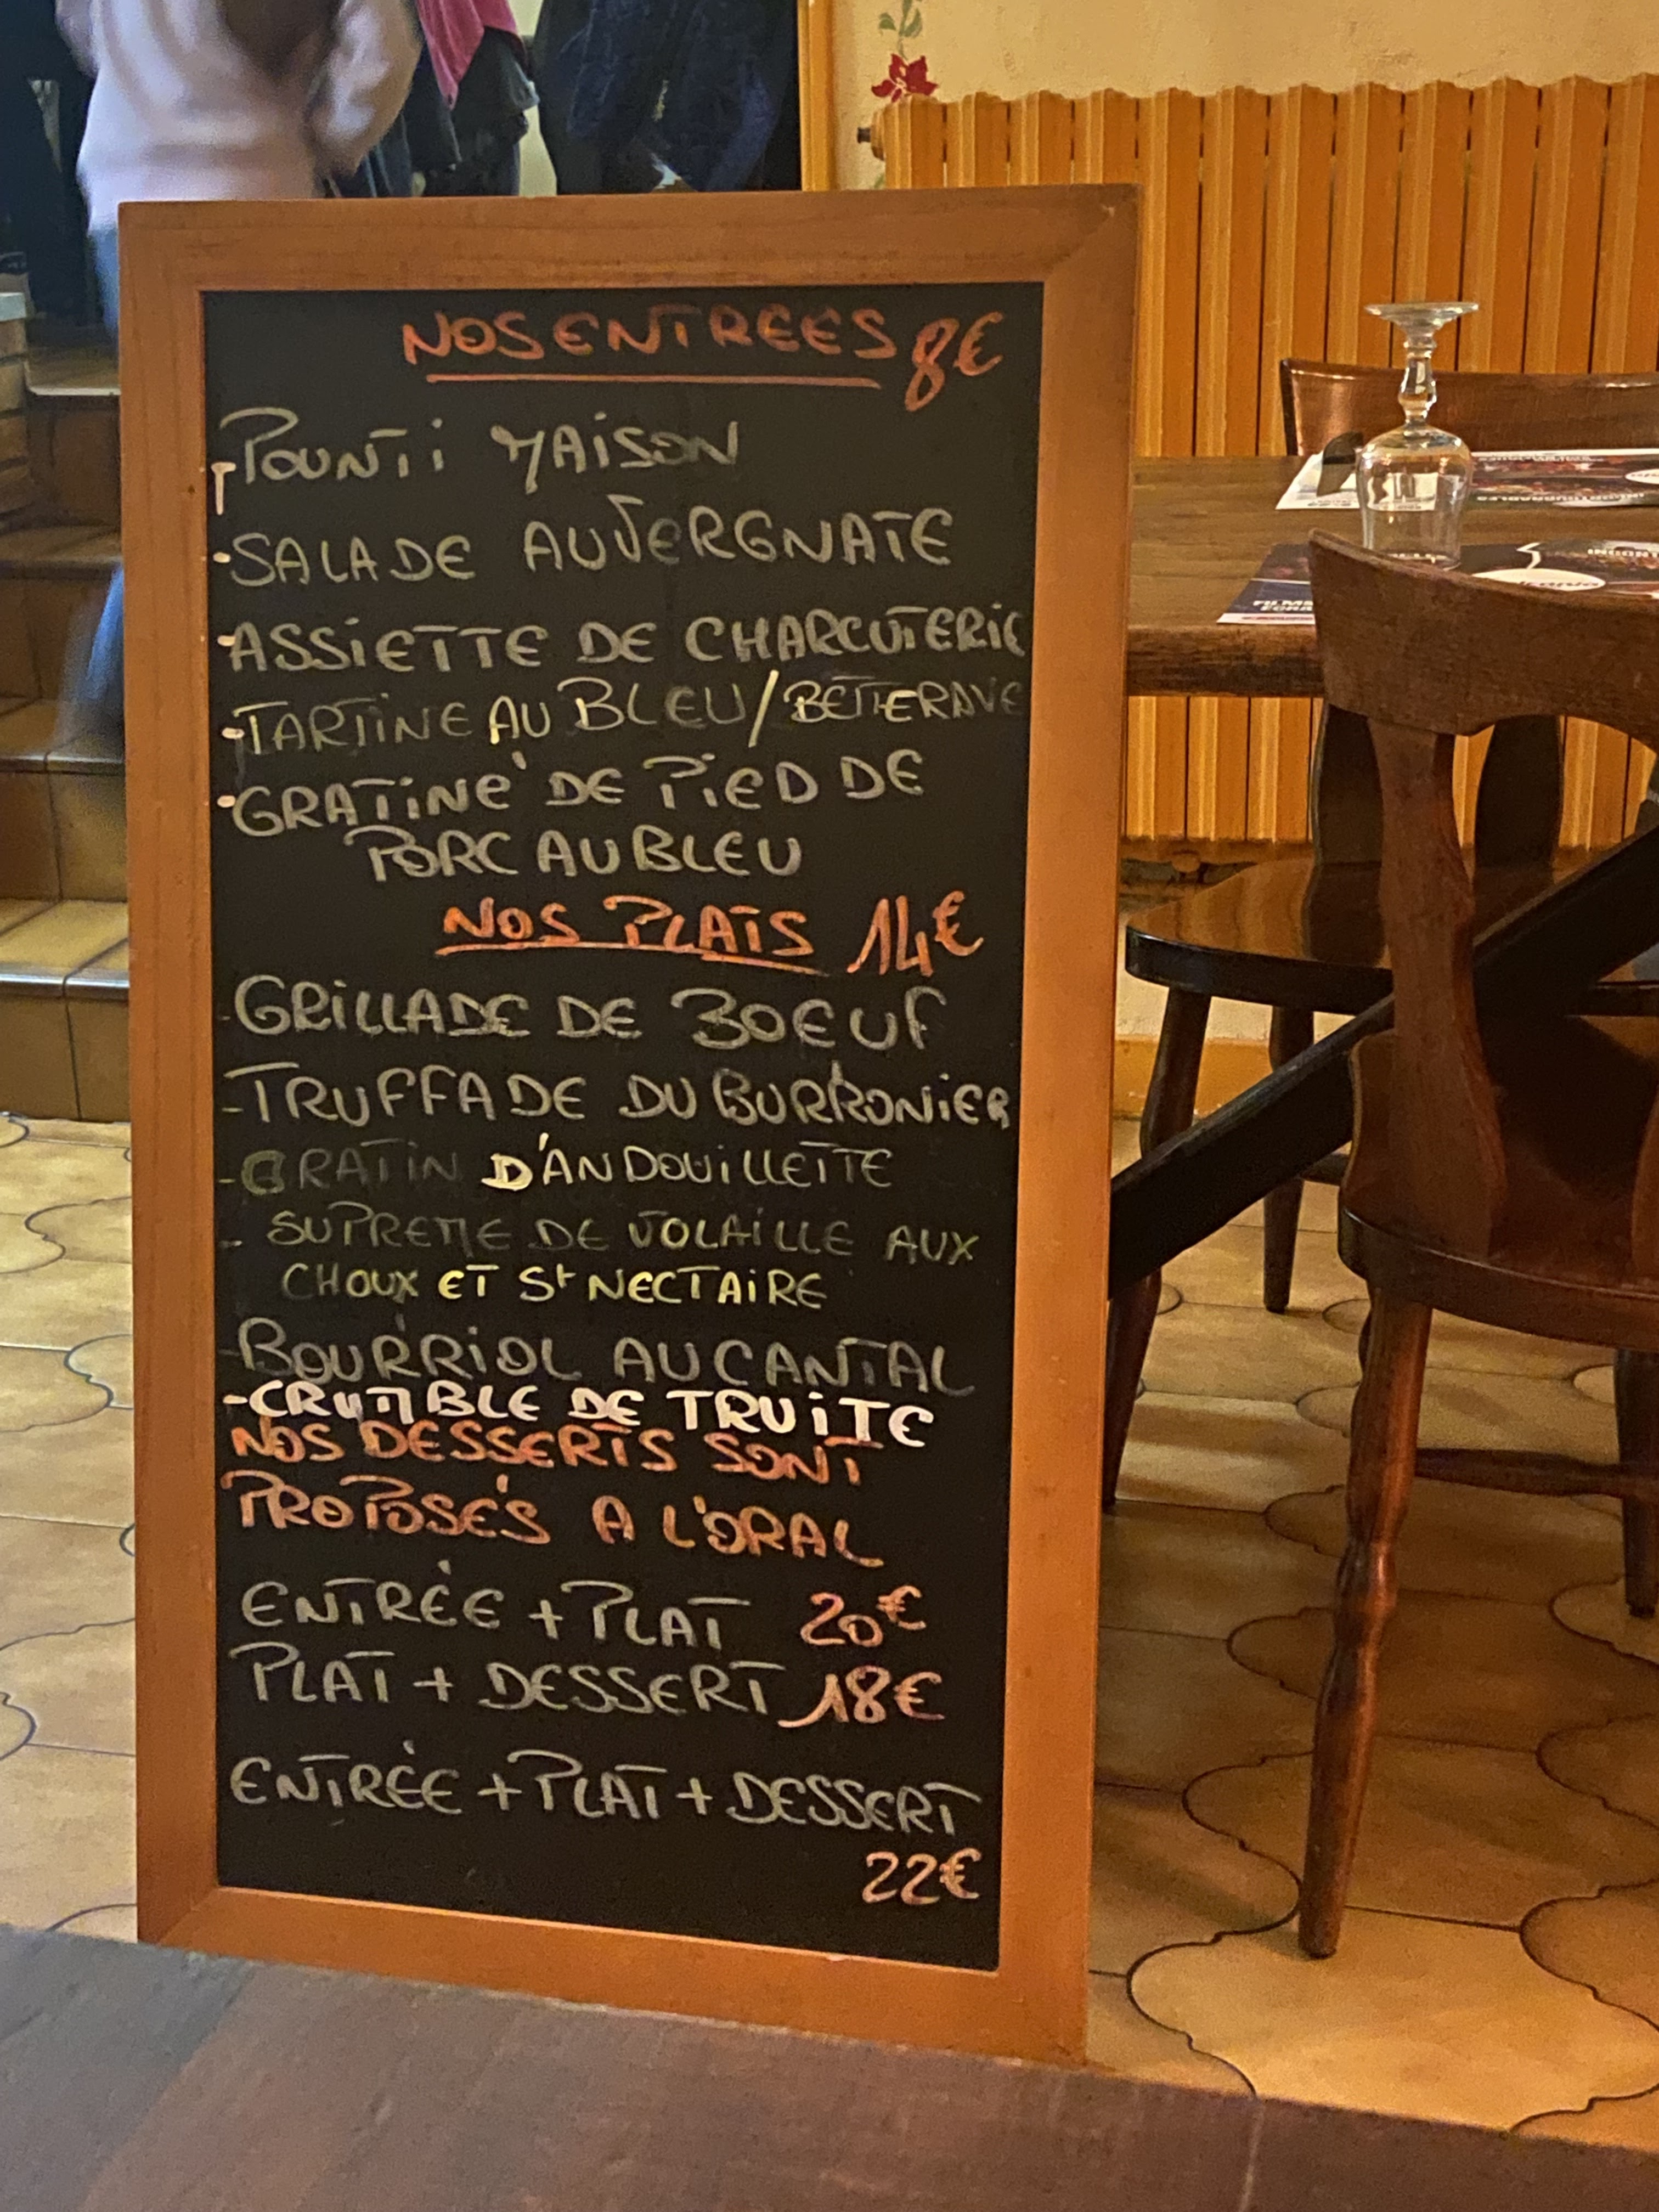 NOS ENTREES 8€
POUNTi MAiSON
·SALADE AUVERGNATE
·ASSiETTE DE CHARCUTERiE
·TARTiNE AU BLEU/BETTERAVE
·GRATiNé DE PiED DE
PORC AU BLEU
NOS PLATS 14€
-GRiLLADE DE BOEUF
-TRUFFADE DU BURRONiER
-GRATiN D'ANDOUiLLETTE
- SUPREME DE VOLAiLLE AUX
CHOUX ET St NECTAiRE
-BOURRiOL AU CANTAL
-CRUMBLE DE TRUiTE
NOS DESSERTS SONT
PROPOSÉS A L'ORAL
ENTRÉE + PLAT 20€
PLAT + DESSERT 18€
ENTRÉE + PLAT + DESSERT
22€